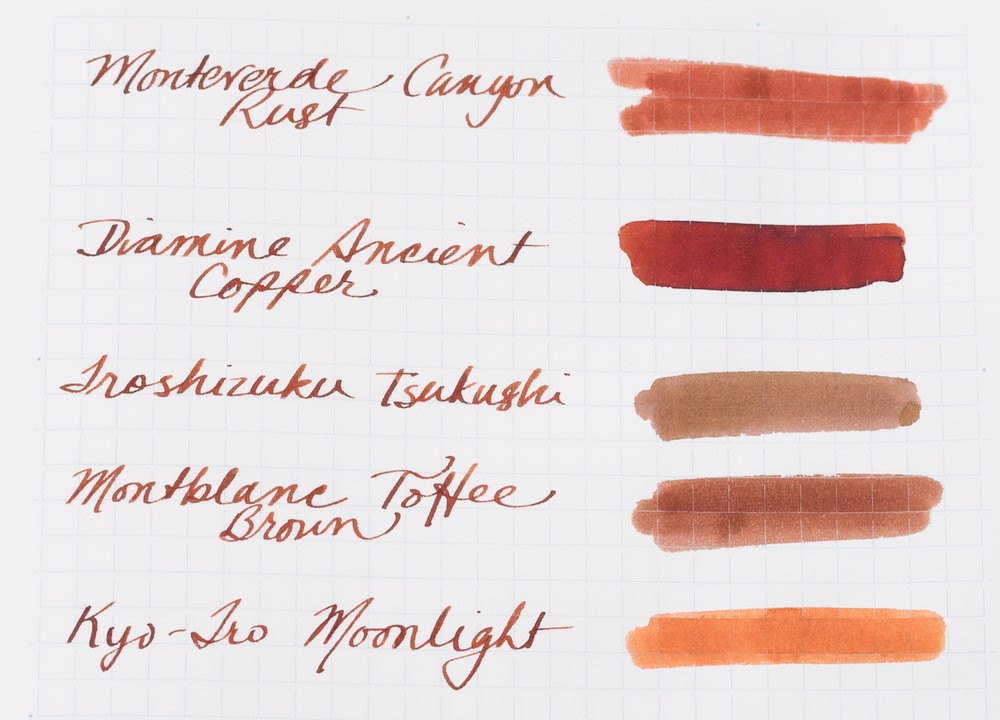 Monteverde Canyon
Rust
Diamine Ancient
Copper
Iroshizuku Tsukushi
Montblanc Toffee
Brown
Kyo-Iro Moonlight